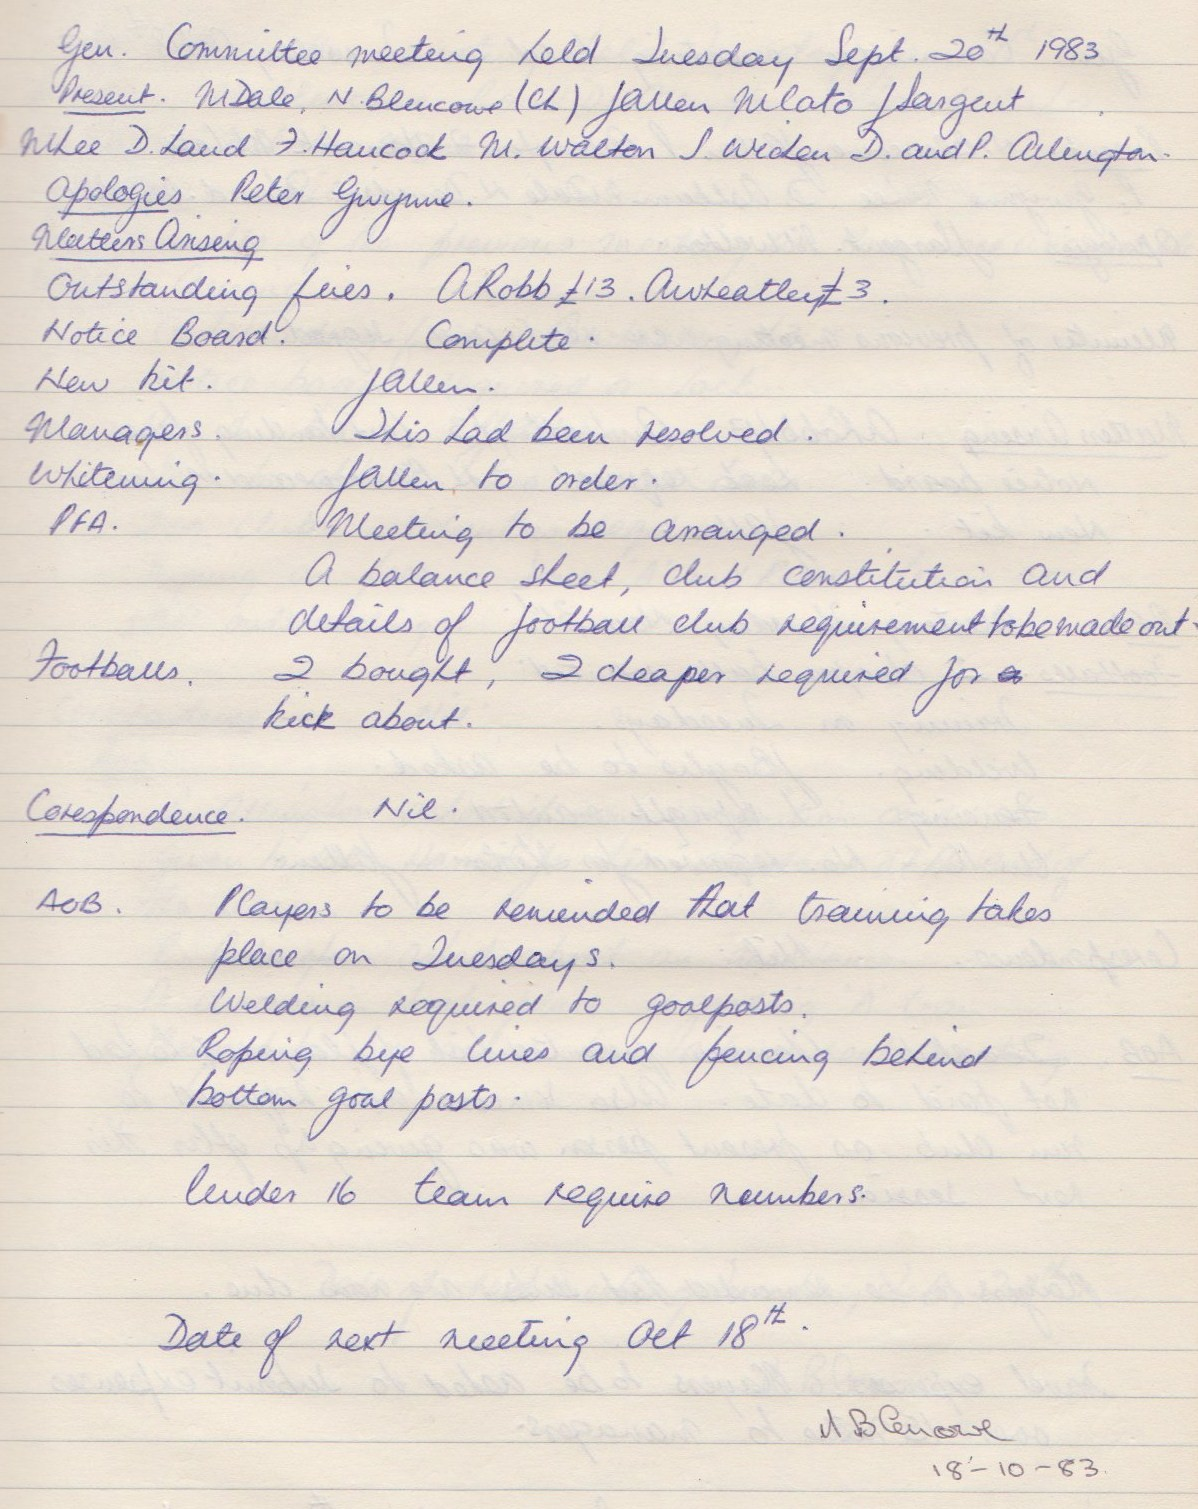 Gen. Committee meeting held Tuesday Sept. 20th 1983
Present. M Dale, N. Blencowe (Ch) J Allen M Cato J Sargent
M Lee D. Land F. Hancock M. Walton S. Widen D. and P. Arlington.
Apologies Peter Gwynne.
Matters Arising
Outstanding fines. A Robb £13. A Wheatley £3.
Notice Board. Complete.
New kit. J Allen.
Managers. This had been resolved.
Whitening. J Allen to order.
PFA. Meeting to be arranged.
A balance sheet, club constitution and
details of football club requirement to be made out.
Footballs. 2 bought, 2 cheaper required for
kick about.
Corespondence. Nil.
AOB. Players to be reminded that training takes
place on Tuesdays.
Welding required to goalposts.
Roping bye lines and fencing behind
bottom goal posts.
Under 16 team require numbers.
Date of next meeting Oct 18th.
N Blencowe
18-10-83.